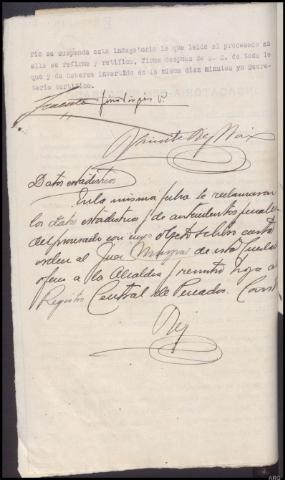 rio se suspende esta indagatoria la que leída al procesado en
ella se refirma y ratifica, firma después de S. S. de todo lo
que y de haberse invertido en la misma diez minutos yo Secre-
tario certifico.
Vicente Rey
Datos estadísticos
En la misma fecha le reclamaron
los datos estadísticos y de antecedentes penales
del procesado con cuyo objeto se libró carta
orden al Juez Municipal de esta
oficio a la Alcaldía y remito hoja al
Registro Central de Penados.
Rey